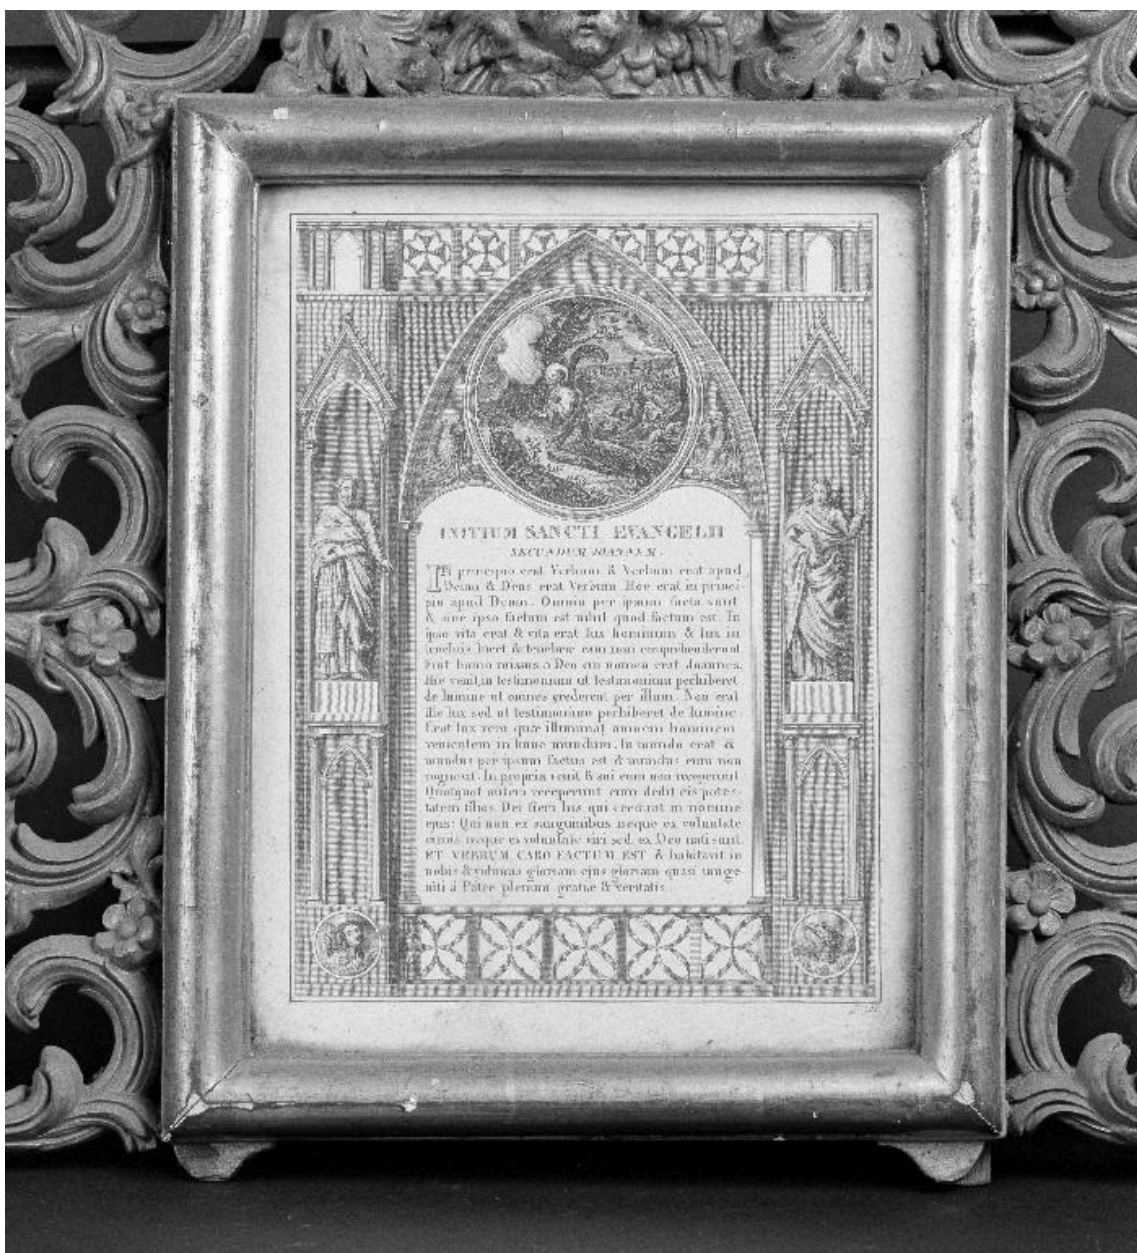 INITIUM SANCTI EVANGELII
SECUNDUM JOANNEM.
In principio erat Verbum & Verbum erat apud
Deum & Deus erat Verbum. Hoc erat in princi-
pio apud Deum. Omnia per ipsum facta sunt
& sine ipso factum est nihil quod factum est. In
ipso vita erat & vita erat lux hominum & lux in
tenebris lucet & tenebræ eam non comprehenderunt
Fuit homo missus a Deo cui nomen erat Joannes.
Hic venit in testimonium ut testimonium perhiberet
de lumine ut omnes crederent per illum. Non erat
ille lux sed ut testimonium perhiberet de lumine.
Erat lux vera quæ illuminat omnem hominem
venientem in hunc mundum. In mundo erat &
mundus per ipsum factus est & mundus eum non
cognovit. In propria venit & sui eum non receperunt.
Quotquot autem receperunt eum dedit eis potes-
tatem filios Dei fieri his qui credunt in nomine
ejus: Qui non ex sanguinibus neque ex voluntate
carnis neque ex voluntate viri sed ex Deo nati sunt.
ET VERBUM CARO FACTUM EST & habitavit in
nobis & vidimus gloriam ejus gloriam quasi unige-
niti á Patre plenum gratiæ & veritatis.